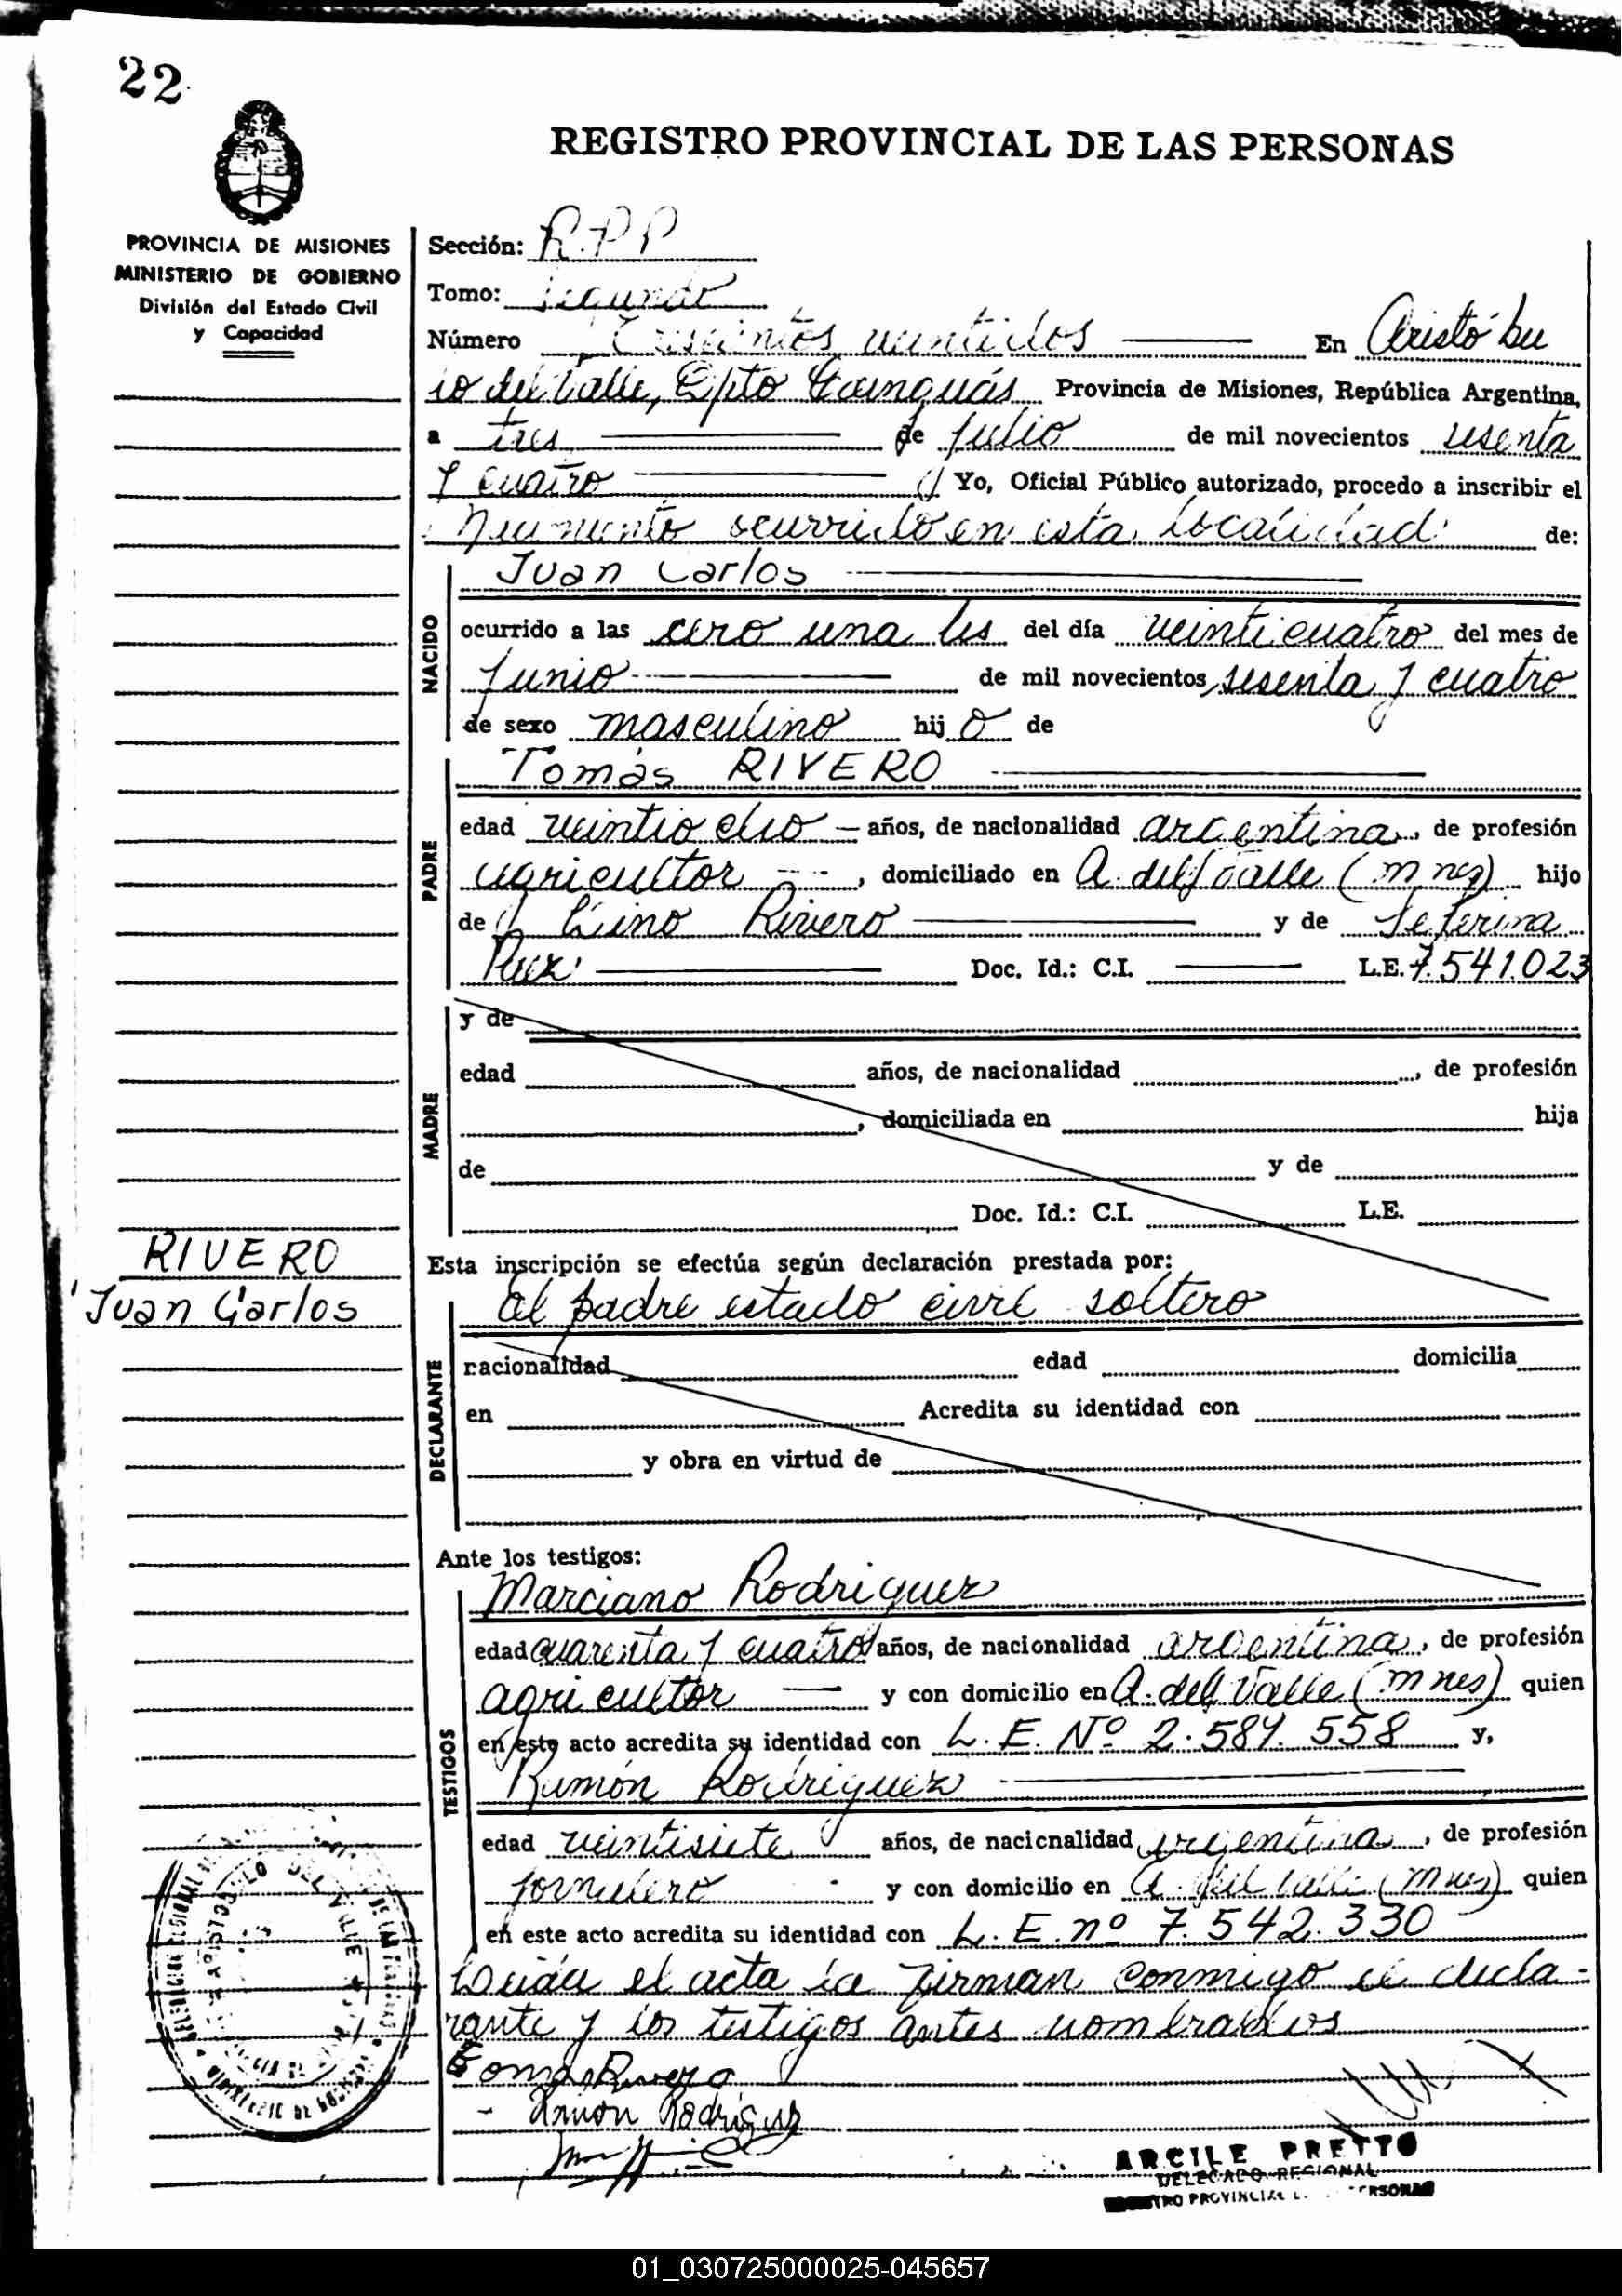 22.
REGISTRO PROVINCIAL DE LAS PERSONAS
PROVINCIA DE MISIONES
MINISTERIO DE GOBIERNO
División del Estado Civil
y Capacidad
Sección: R.P.P
Tomo: Segundo
Número Trescientos veintidos En Aristóbu
lo del Valle, Dpto Cainguás Provincia de Misiones, República Argentina,
a tres de julio de mil novecientos sesenta
y cuatro Yo, Oficial Público autorizado, procedo a inscribir el
Nacimiento ocurrido en esta localidad de:
NACIDO
Juan Carlos
ocurrido a las cero una hs del día veinticuatro del mes de
Junio de mil novecientos sesenta y cuatro
de sexo masculino hij o de
PADRE
Tomás RIVERO
edad veintiocho años, de nacionalidad argentina, de profesión
agricultor, domiciliado en A. del Valle (Mnes) hijo
de Lino Rivero y de Seferina
Doc. Id.: C.I. L.E. 7.541.023
MADRE
y de
edad años, de nacionalidad , de profesión
, domiciliada en hija
de y de
Doc. Id.: C.I. L.E.
RIVERO
Juan Carlos
Esta inscripción se efectúa según declaración prestada por:
DECLARANTE
el padre estado civil soltero
nacionalidad edad domicilia
en Acredita su identidad con
y obra en virtud de
Ante los testigos:
TESTIGOS
Marciano Rodriguez
edad cuarenta y cuatro años, de nacionalidad argentina, de profesión
agricultor y con domicilio en A. del Valle (Mnes) quien
en este acto acredita su identidad con L. E. Nº 2.589.558 y,
Ramón Rodriguez
edad veintisiete años, de nacionalidad argentina, de profesión
jornalero y con domicilio en A. del Valle (Mnes) quien
en este acto acredita su identidad con L. E. nº 7.542.330
el acta la firman conmigo el decla-
rante y los testigos antes nombrados
Tomas Rivero
Ramon Rodriguez
ARCILE PRETTO
DELEGADO REGIONAL
01_030725000025-045657